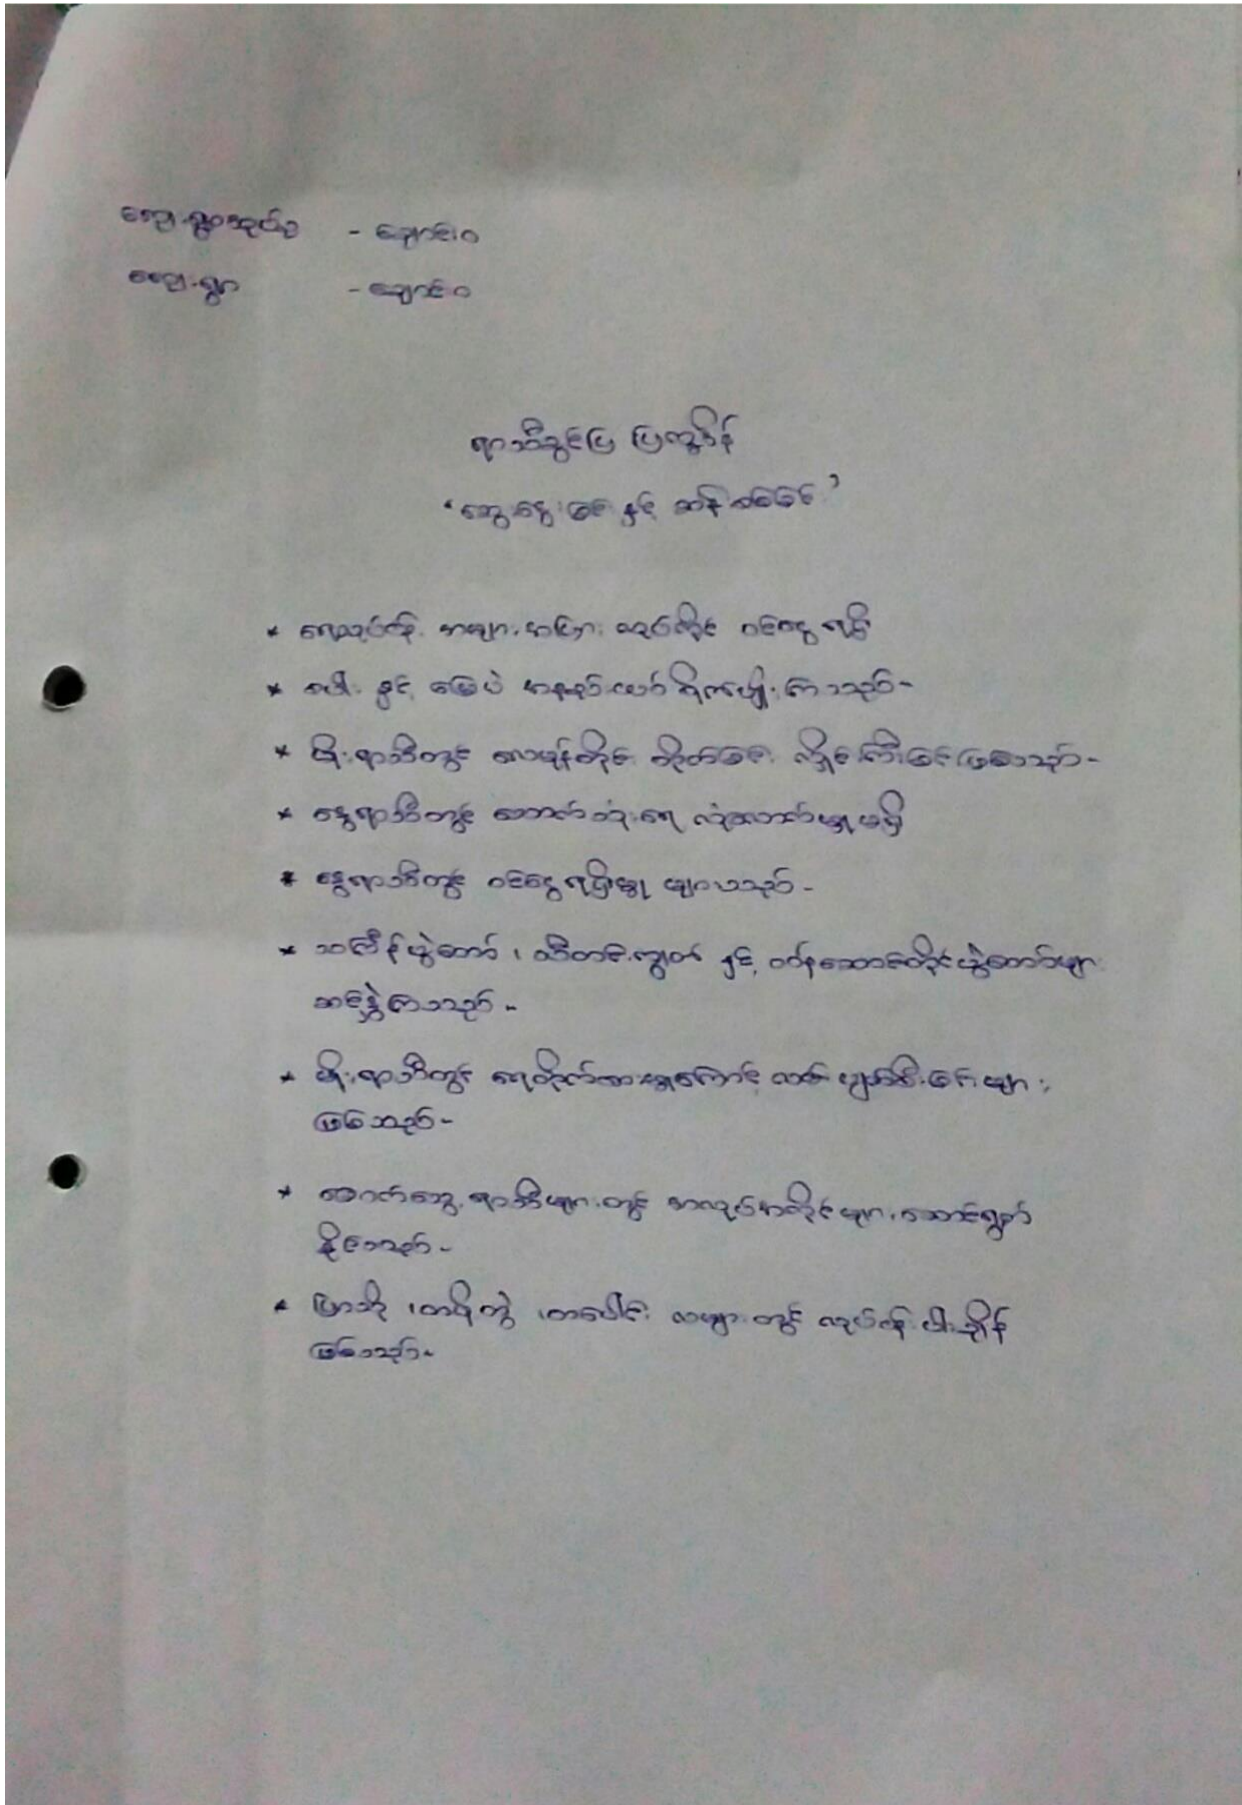 ကျေးရွာအုပ်စု - ချောင်းဝ
ကျေးရွာ - ချောင်းဝ
ရာသီခွင်ပြ ပြက္ခဒိန်
“ဆွေးနွေးခြင်း နှင့် ဆန်းစစ်ခြင်း”
* ရေလုပ်ငန်း အများအပြား လုပ်ကိုင် ဝင်ငွေ ရရှိ
* စပါး နှင့် မြေပဲ အနည်းငယ် စိုက်ပျိုးကြသည်-
* မိုးရာသီတွင် လေမုန်တိုင်း တိုက်ခြင်း၊ လှိုင်းကြီးခြင်းဖြစ်သည်-
* နွေရာသီတွင် သောက်သုံးရေ လုံလောက်မှု မရှိ
* နွေရာသီတွင် ဝင်ငွေ ရရှိမှု များသည်-
* သင်္ကြန်ပွဲတော်၊ သီတင်းကျွတ် နှင့် တန်ဆောင်တိုင်ပွဲတော်များ
ဆင်နွှဲကြသည်-
* မိုးရာသီတွင် ရေတိုက်စားမှုကြောင့် လမ်းပျက်စီးခြင်းများ
ဖြစ်သည်-
* ခြောက်သွေ့ ရာသီများတွင် အလုပ်အကိုင်များ ဆောင်ရွက်
နိုင်သည်-
* ပြာသို၊ တပို့တွဲ၊ တပေါင်း လများတွင် လုပ်ငန်း ပါးချိန်
ဖြစ်သည်-